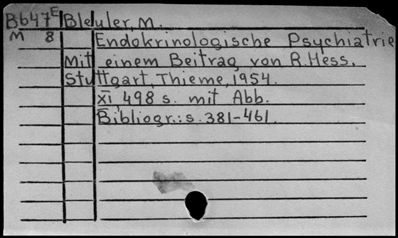 B647E Bleuler, M.
M 8 Endokrinologische Psychiatrie
Mit einem Beitrag von R. Hess.
Stuttgart, Thieme, 1954.
XI, 498 s. mit Abb.
Bibliogr.: s. 381-461.